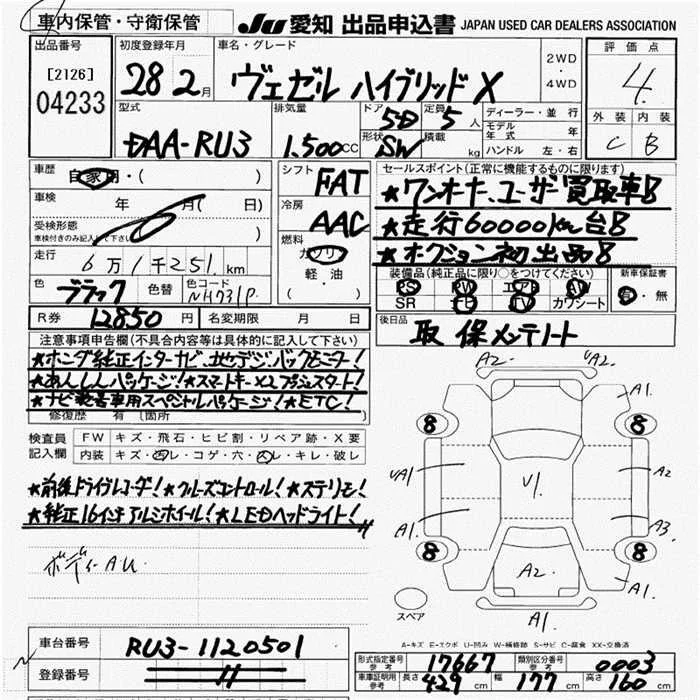 車内保管・守衛保管
JU 愛知 出品申込書 JAPAN USED CAR DEALERS ASSOCIATION
出品番号 初度登録年月 車名・グレード 評価点
[2126] 04233
28 2月 ヴェゼル ハイブリッド X 2WD・4WD 4
型式 排気量 ドア 定員 ディーラー・並行 外装 内装
DAA-RU3 1.500cc 5D 5人 モデル年式 年 C B
形状 SW 積載 kg ハンドル 左・右
車歴 自家用・( ) シフト FAT セールスポイント(正常に機能するものに限ります)
★ワンオーナーユーザー買取車!!
車検 年 月( 日) 冷房 AAC ★走行60000km台!!
受検形態 車検付きのみ記入して下さい ) 燃料 ガソリン ★オークション初出品!!
走行 6万1千251km 軽・油 装備品(純正品に限り○をつけてください) 新車保証書
PS PW エアB AW 有・無
色 ブラック 色替 色コード NH731P ( ) SR ナビ TV カワシート
R券 12850円 名変期限 月 日 後日品 取 保 メンテノート
注意事項申告欄(不具合内容等は具体的に記入して下さい)
★ホンダ純正インターナビ、地デジ、バックモニター!
★あんしんパッケージ!★スマートキー×2プッシュスタート!
★ナビ装着車用スペシャルパッケージ!★ETC!
修復歴 有 [箇所
検査員記入欄 FW キズ・飛石・ヒビ割・リペア跡・X要
内装 キズ・ヨゴレ・コゲ・穴・スレ・キレ・破レ
★前後ドライブレコーダー!★クルーズコントロール!★ステリモ!
★純正16インチアルミホイール!★LEDヘッドライト!
ボディーAU
A2 UA2
A1
8 8
UA1 U1 A2
A1 A3
8 8
A2 A1
スペア A1
A-キズ E-エクボ U-凹み W-補修跡 S-サビ C-腐食 XX-交換済
車台番号 RU3-1120501 形式指定番号 参考 17667 類別区分番号 参考 0003
登録番号 車庫証明用 参考 長さ 429cm 幅 177cm 高さ 160cm